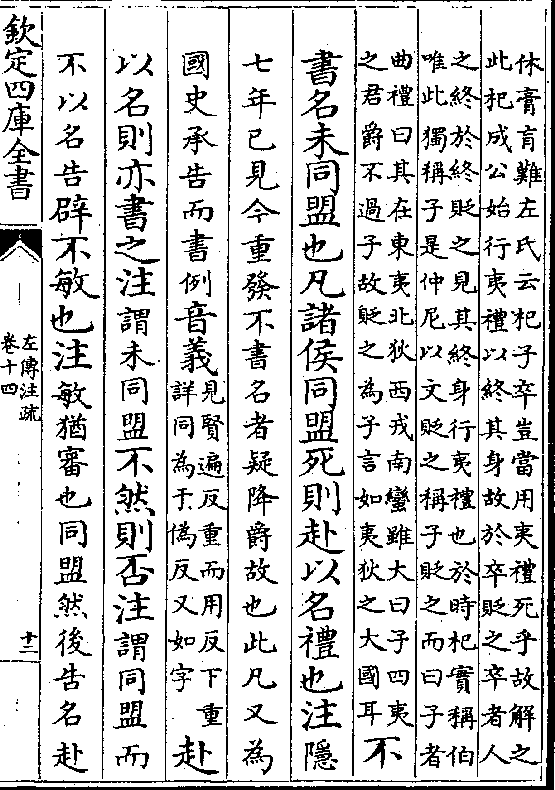 休膏肓難左氏云杞子卒豈當用夷禮死乎故解之
此杞成公始行夷禮以終其身故於卒貶之卒者人
之終於終貶之見其終身行夷禮也於時杞實稱伯
唯此獨稱子是仲尼以文貶之稱子貶之而曰子者
曲禮曰其在東夷北狄西戎南蠻雖大曰子四夷
之君爵不過子故貶之為子言如夷狄之大國耳不
書名未同盟也凡諸侯同盟死則赴以名禮也注隱
七年已見今重發不書名者疑降爵故也此凡又為
國史承告而書例音義見賢遍反重而用反下重
詳同為于偽反又如字赴
以名則亦書之注謂未同盟不然則否注謂同盟而
不以名告辟不敏也注敏猶審也同盟然後告名赴
欽定四庫全書
左傳注疏
卷十四
十二